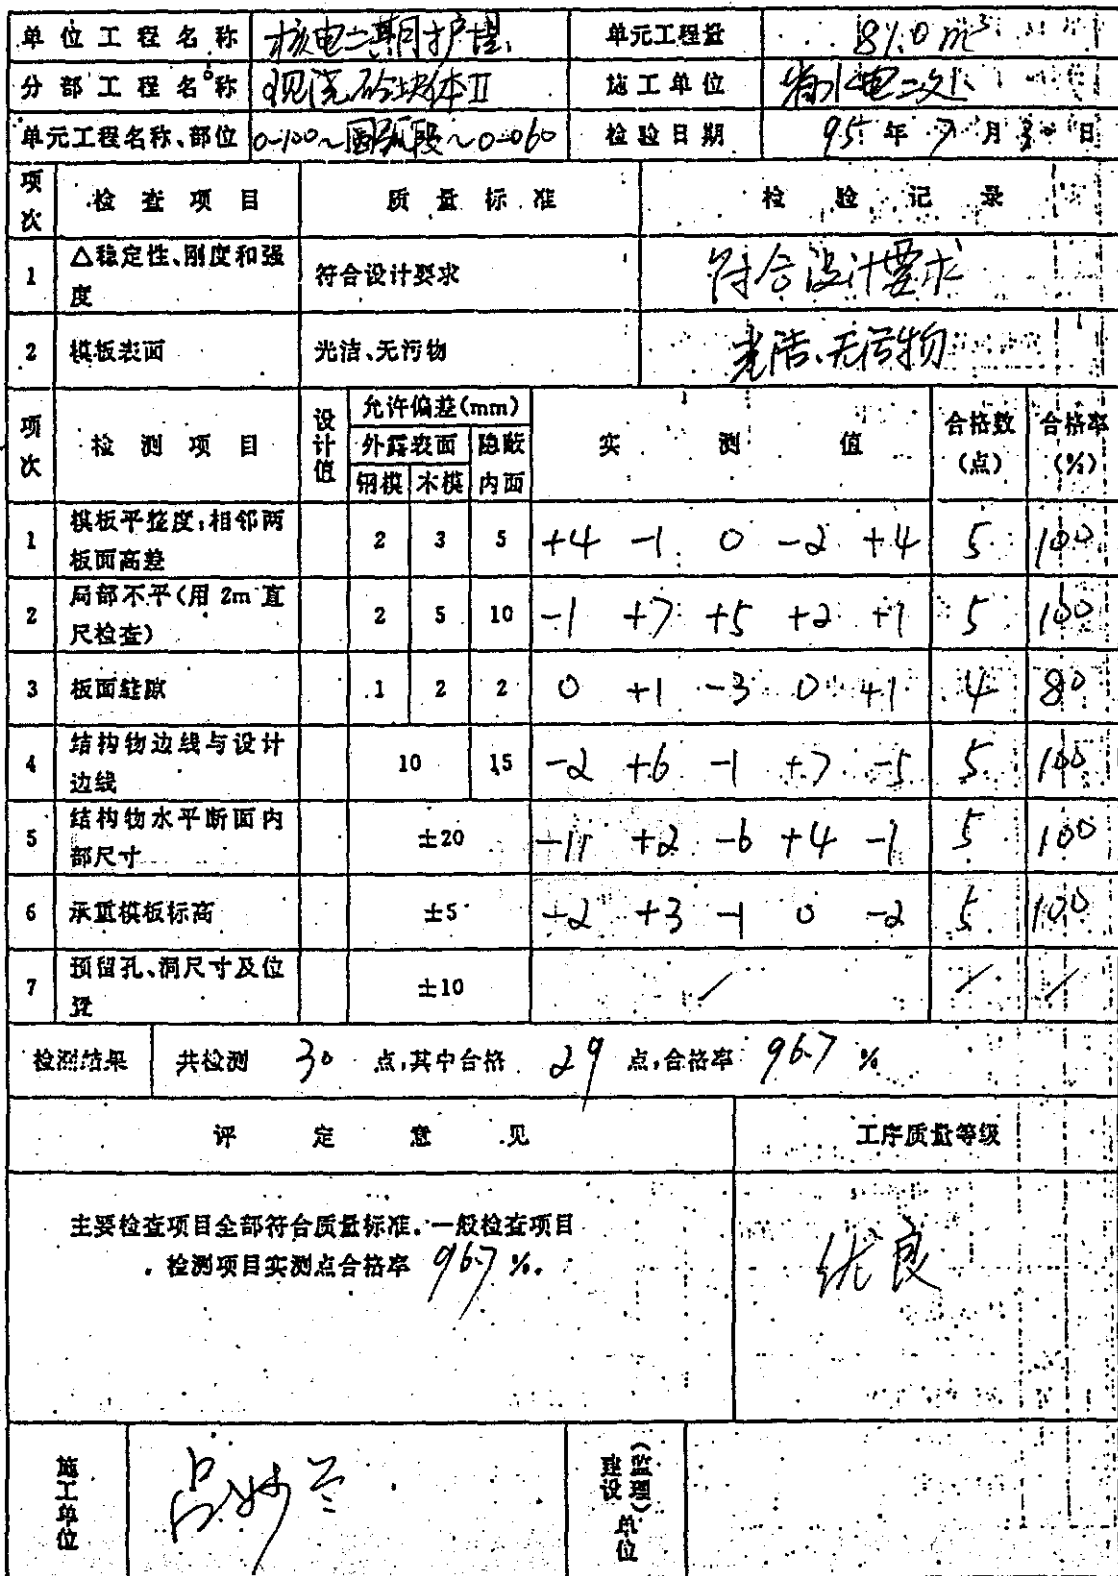 单位工程名称 核电二期护堤 单元工程量 81.0 m³
分部工程名称 现浇砼块体Ⅱ 施工单位 省水电二处
单元工程名称、部位 0-100~圆弧段~0-060 检验日期 95年7月30日
项次 检查项目 质量标准 检验记录
1 △稳定性、刚度和强度 符合设计要求 符合设计要求
2 模板表面 光洁、无污物 光洁、无污物
项次 检测项目 设计值 允许偏差(mm) 实测值 合格数(点) 合格率(%)
外露表面 隐蔽内面
钢模 木模
1 模板平整度:相邻两板面高差 2 3 5 +4 -1 0 -2 +4 5 100
2 局部不平(用 2m 直尺检查) 2 5 10 -1 +7 +5 +2 +1 5 100
3 板面缝隙 1 2 2 0 +1 -3 0 +1 4 80
4 结构物边线与设计边线 10 15 -2 +6 -1 +7 -5 5 100
5 结构物水平断面内部尺寸 ±20 -11 +2 -6 +4 -1 5 100
6 承重模板标高 ±5 -2 +3 -1 0 -2 5 100
7 预留孔、洞尺寸及位置 ±10 / / /
检测结果 共检测 30 点,其中合格 29 点,合格率 96.7 %
评定意见 工序质量等级
主要检查项目全部符合质量标准。一般检查项目
。检测项目实测点合格率 96.7 %。
优良
施工单位 吕妙兰 建设(监理)单位